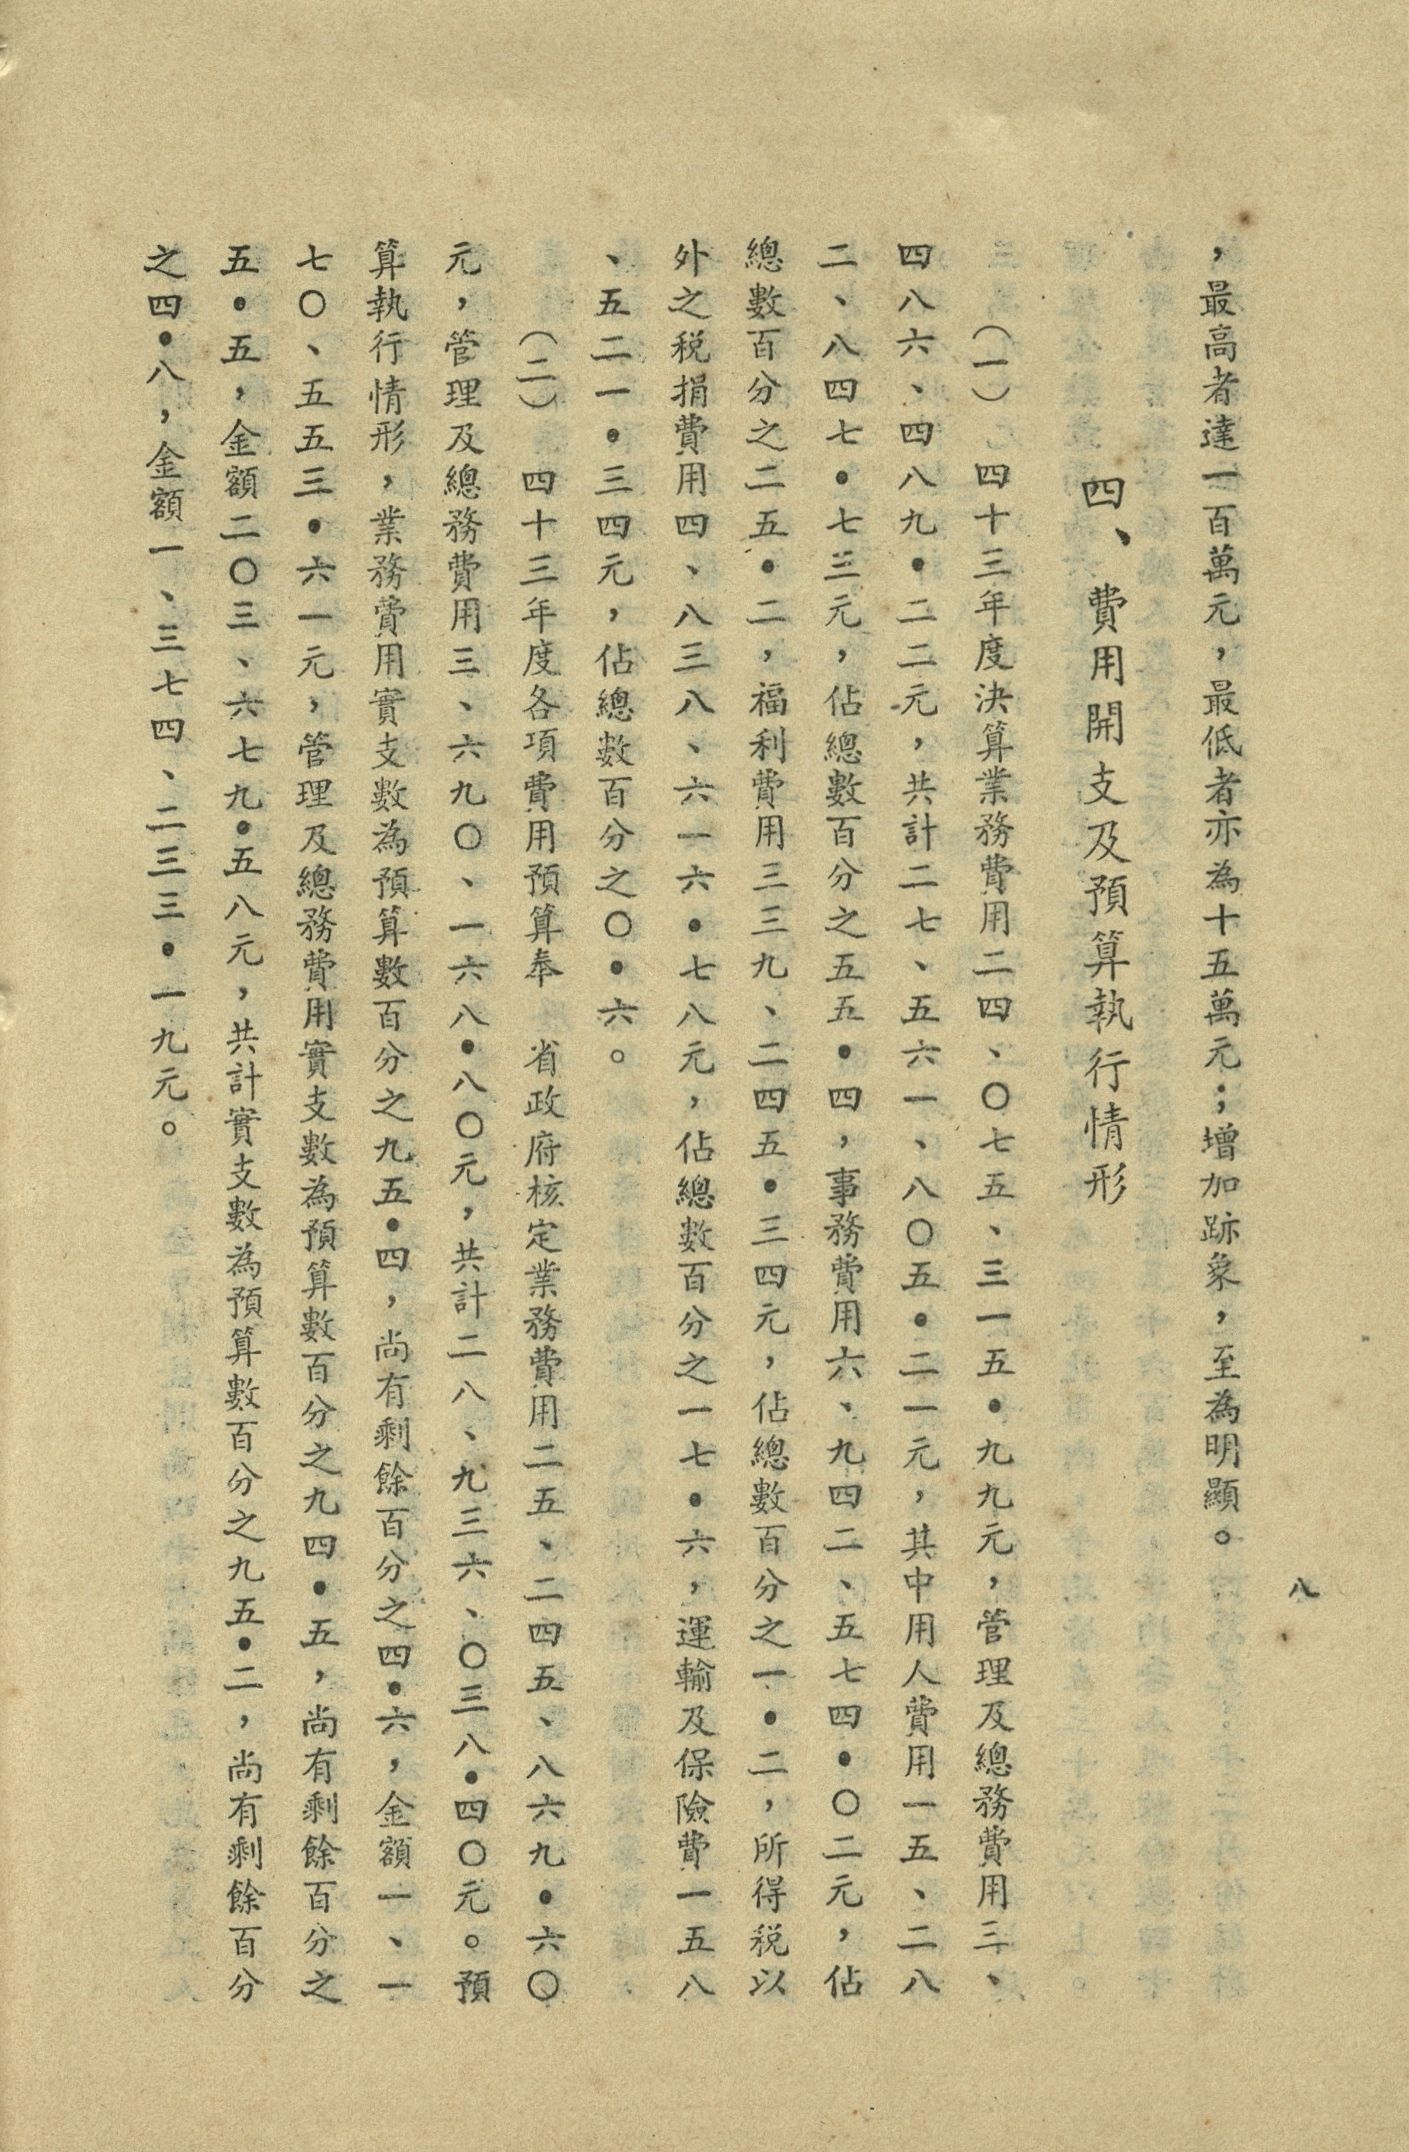 八
，最高者達一百萬元，最低者亦為十五萬元；增加跡象，至為明顯。
四、費用開支及預算執行情形
（一）四十三年度決算業務費用二四、〇七五、三一五・九九元，管理及總務費用三、
四八六、四八九・二二元，共計二七、五六一、八〇五・二一元，其中用人費用一五、二八
二、八四七・七三元，佔總數百分之五五・四，事務費用六、九四二、五七四・〇二元，佔
總數百分之二五・二，福利費用三三九、二四五・三四元，佔總數百分之一・二，所得税以
外之税捐費用四、八三八、六一六・七八元，佔總數百分之一七・六，運輸及保險費一五八
、五二一・三四元，佔總數百分之〇・六。
（二）四十三年度各項費用預算奉　省政府核定業務費用二五、二四五、八六九・六〇
元，管理及總務費用三、六九〇、一六八・八〇元，共計二八、九三六、〇三八・四〇元。預
算執行情形，業務費用實支數為預算數百分之九五・四，尚有剩餘百分之四・六，金額一、一
七〇、五五三・六一元，管理及總務費用實支數為預算數百分之九四・五，尚有剩餘百分之
五・五，金額二〇三、六七九・五八元，共計實支數為預算數百分之九五・二，尚有剩餘百分
之四・八，金額一、三七四、二三三・一九元。